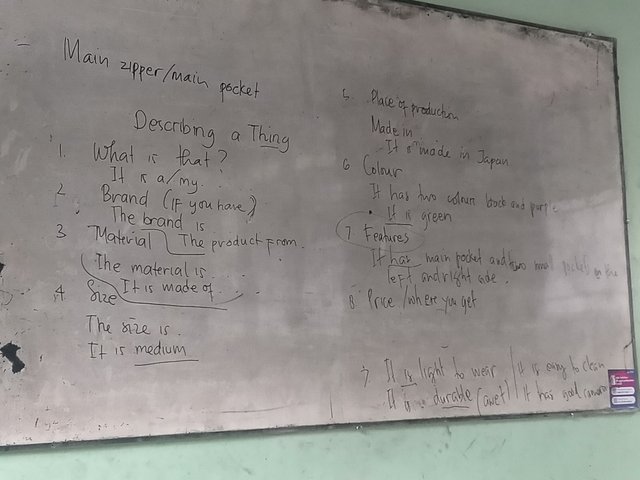 Main zipper/main pocket
Describing a Thing
1. What is that?
It is a/my...
2. Brand (IF you have)
The brand is
3. Material The product from.
The material is....
It is made of....
4. Size
The size is.
It is medium
5. Place of production
Made in
It is made in Japan
6. Colour
It has two colours black and purple
• It is green
7. Features
It has main pocket and two small pockets on the
left and right side.
8. Price/where you get
7. It is light to wear / it is easy to clean
It is durable (awet) / It has good camera